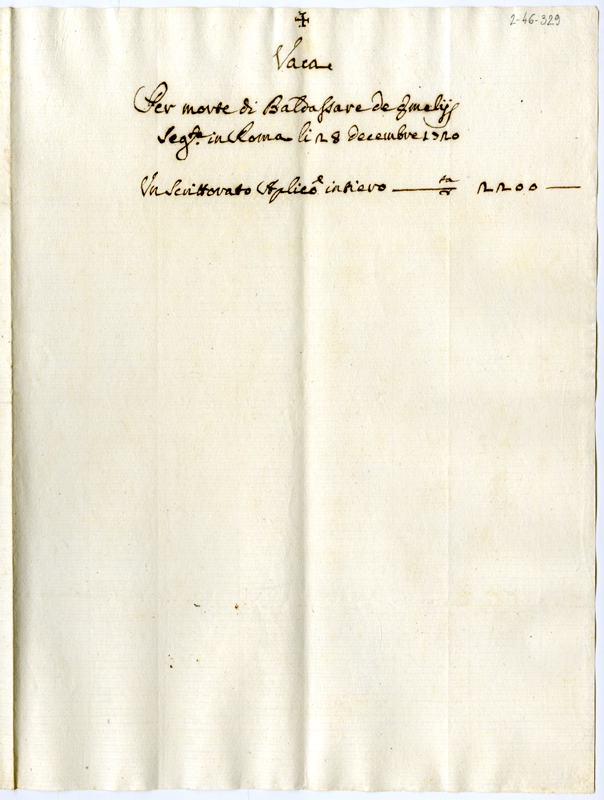 2-46-329
✠
Vaca
Per morte di Baldassare de
Seg.ta in Roma li 28 decembre 1720
Un Scrittorato Aplico intiero — 2200 —